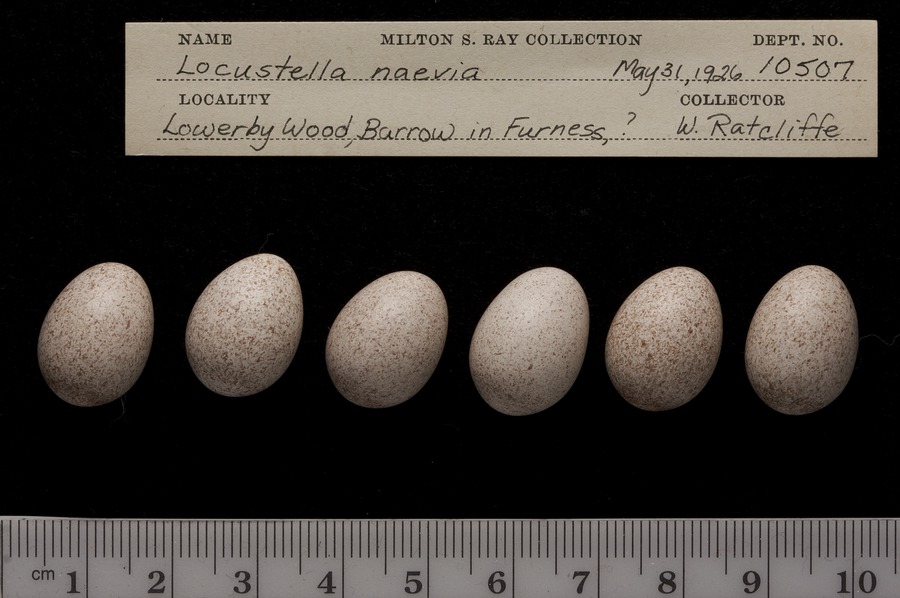 NAME MILTON S. RAY COLLECTION DEPT. NO.
Locustella naevia May 31, 1926 10507
LOCALITY COLLECTOR
Lowerby Wood, Barrow in Furness, ? W. Ratcliffe
cm 1 2 3 4 5 6 7 8 9 10